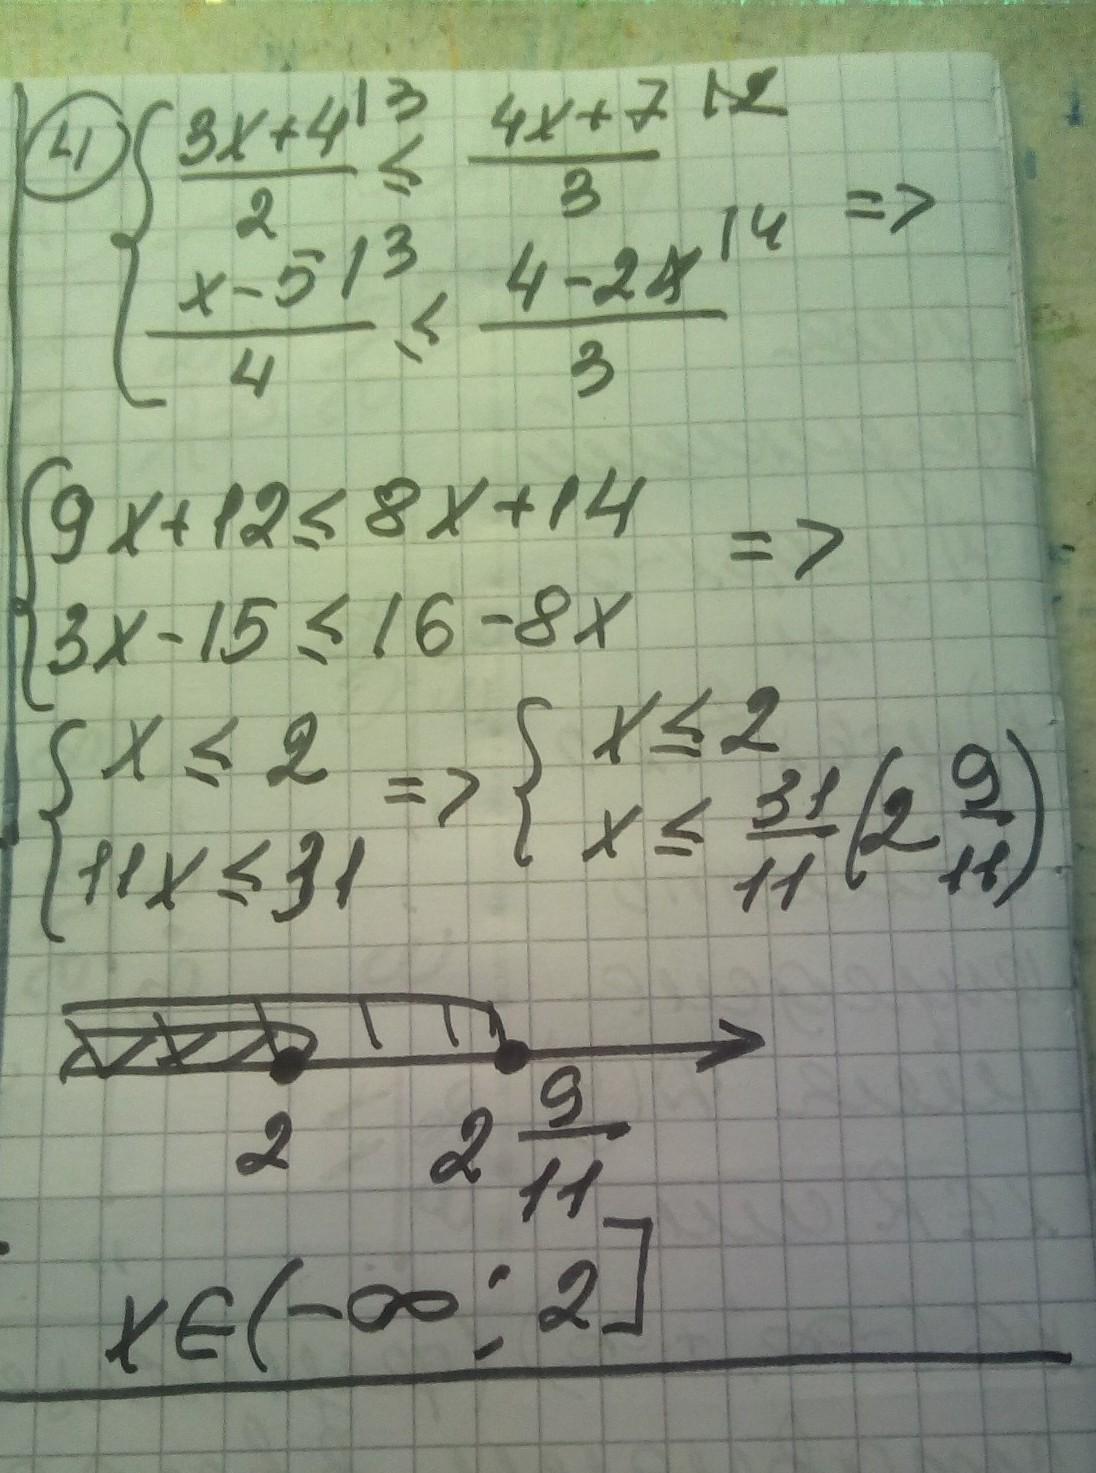 4) { (3x+4)/2 |3 ≤ (4x+7)/3 |2
(x-5)/4 |3 ≤ (4-2x)/3 |4 =>
{ 9x+12 ≤ 8x+14
3x-15 ≤ 16-8x =>
{ x ≤ 2 => { x ≤ 2
11x ≤ 31 x ≤ 31/11 (2 9/11)
2 2 9/11
x∈(-∞; 2]